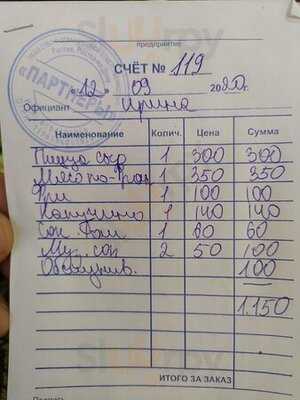 предприятие
СЧЁТ № 119
«ПАРТНЕРЫ»
«12» 09 2020г.
Официант Ирина
Наименование Колич. Цена Сумма
Пицца сыр 1 300 300
Мясо по-фран 1 350 350
Фри 1 100 100
Капучино 1 140 140
Сок 1 60 60
2 50 100
Обслужив. 100
1.150
ИТОГО ЗА ЗАКАЗ